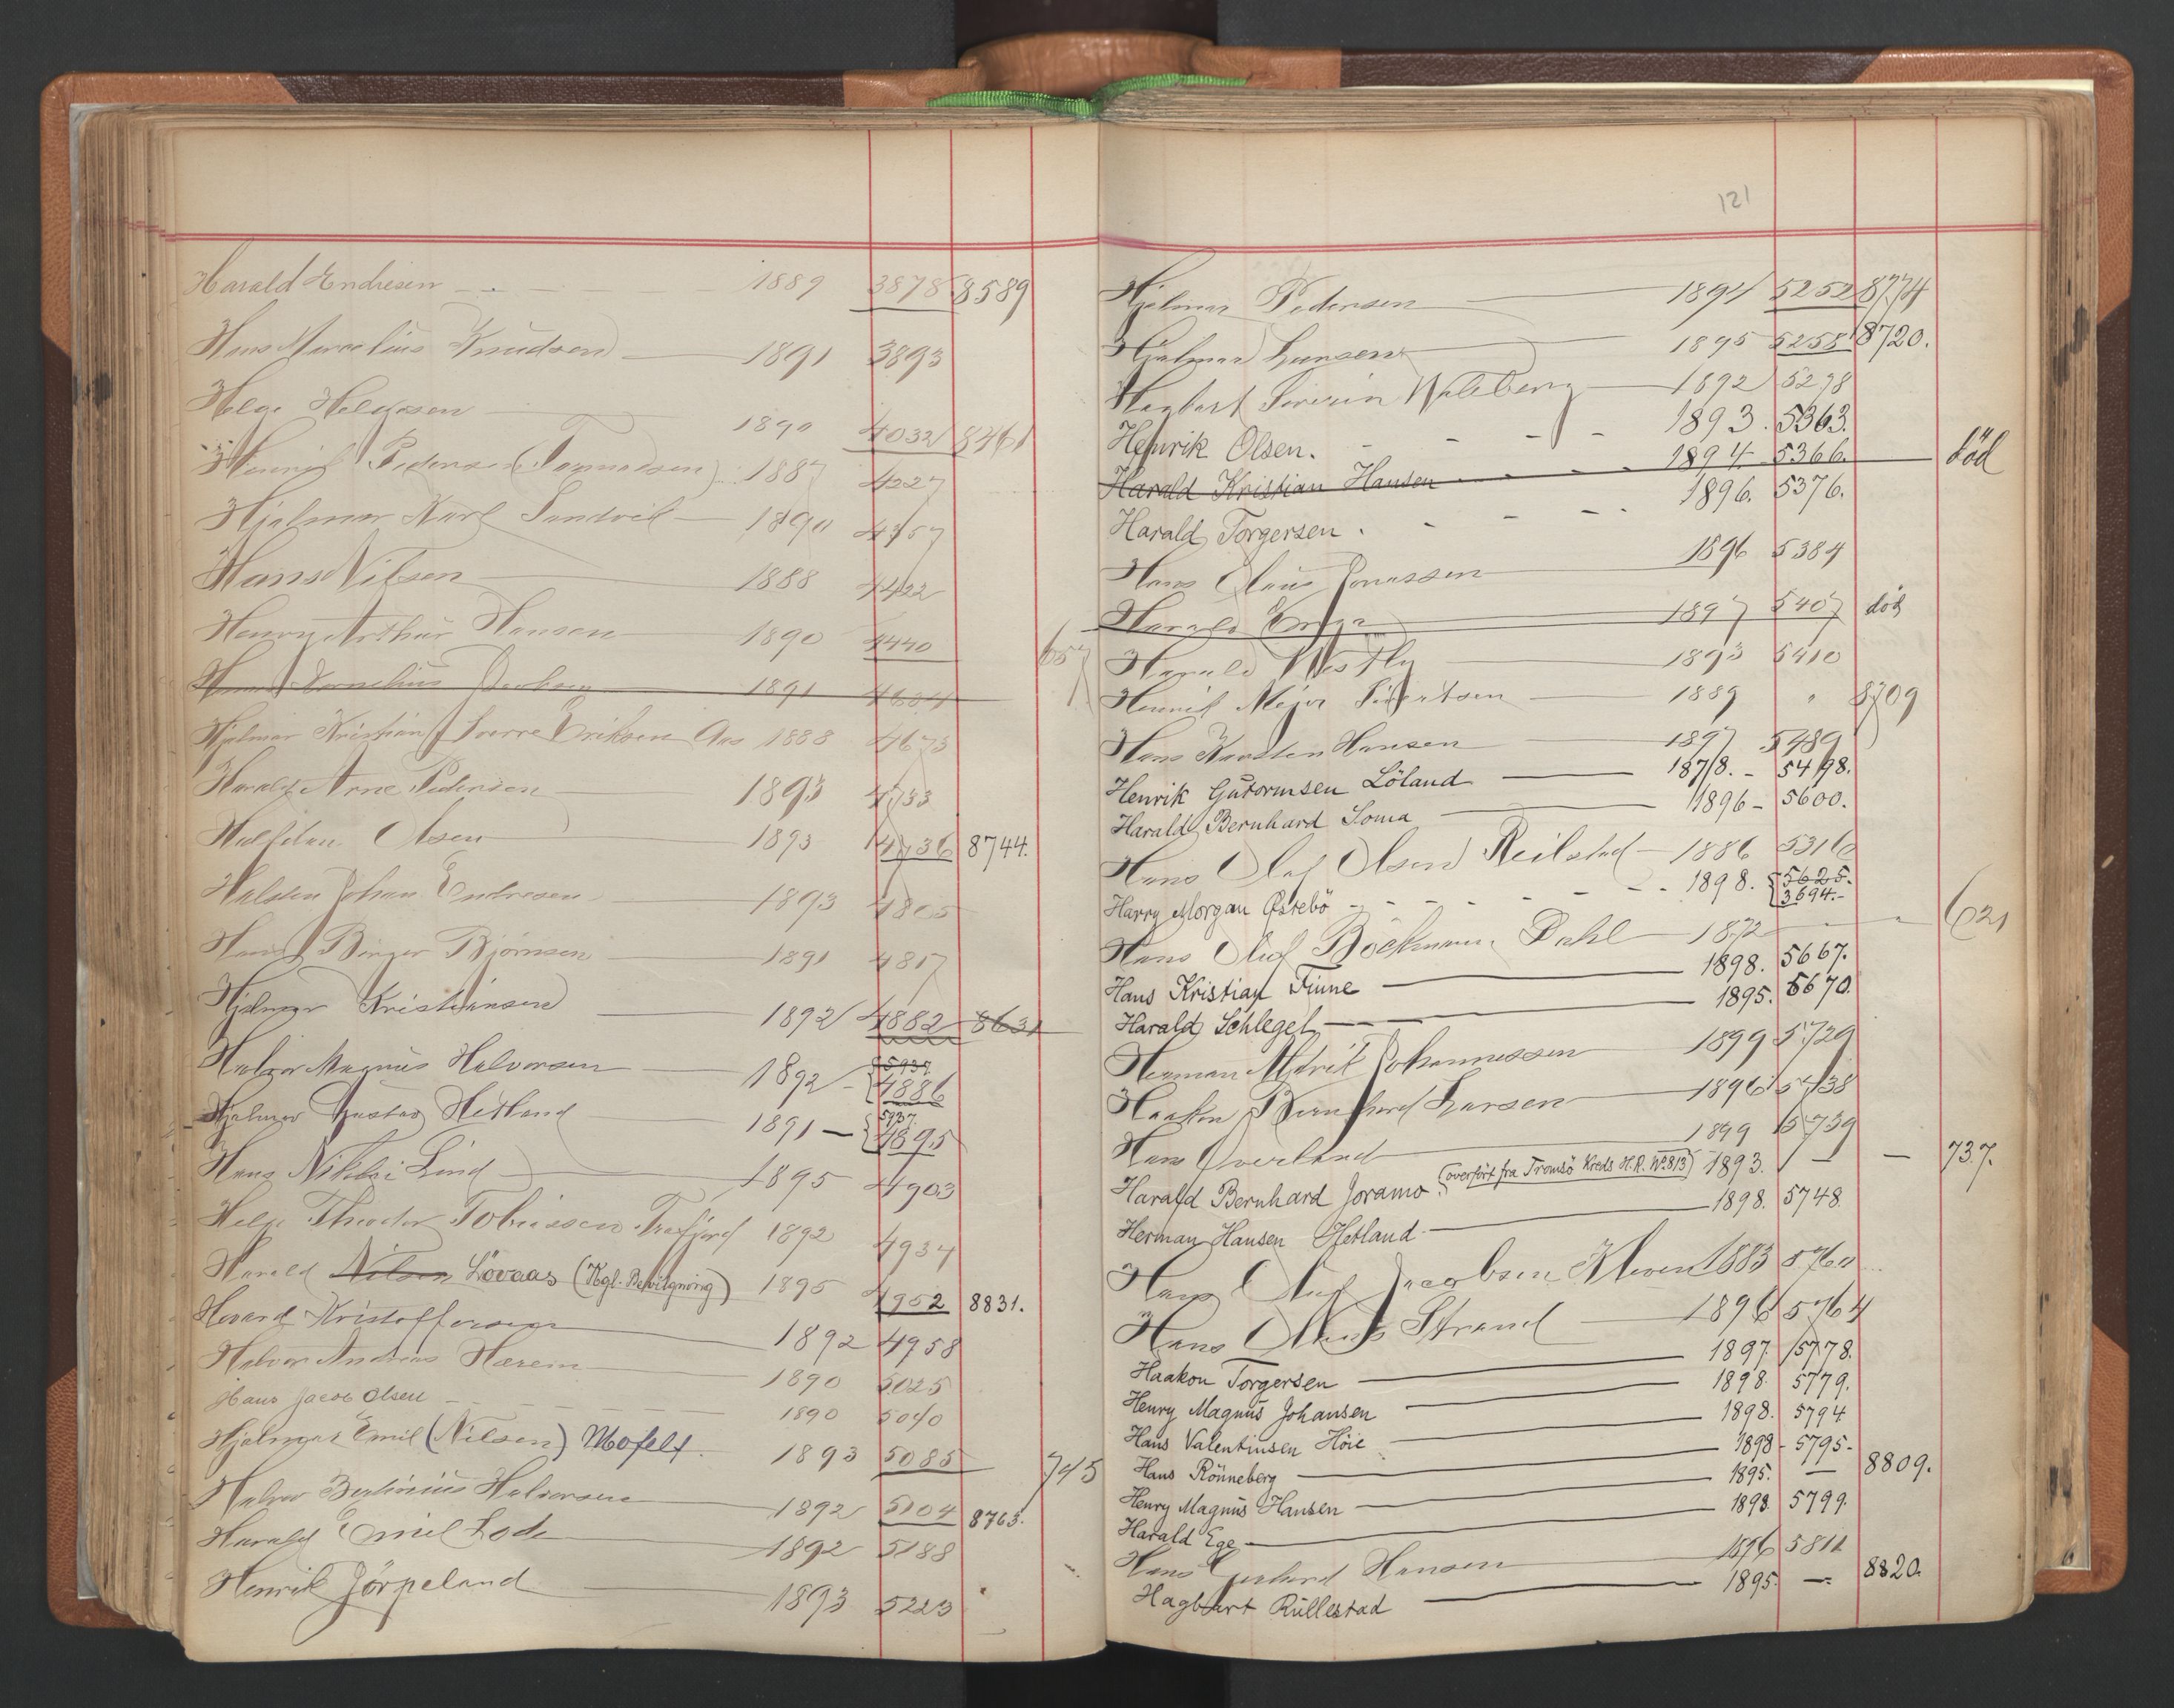 Harald Endresen 1889 3878 8589
Hans Marcelius Knudsen 1891 3893
Helge Helgesen 1890 4032 8361
Henrik Pedersen 1887 4227
Hjalmar Karl Sandvik 1890 4357
Hans Nilsen 1888 4422
Henry Arthur Hansen 1890 4440
Kornelius 1891 4604
Hjalmar Kristian Sverre Eriksen Aas 1888 4673
Harald Arne Pedersen 1893 4733
Halfdan Olsen 1893 4736 8744.
Halsten Johan Endresen 1893 4805
Birger Bjørnsen 1891 4817
Hjalmar Kristiansen 1892 4882 8631
Halvor Magnus Halvorsen 1892 - { 5937. 4886
Hjalmar Gustav Hetland 1891 - { 5937. 4895
Hans Nikolai Lind 1895 4903
Helge Theodor Tobiassen Frafjord 1892 4934
Harald Nilsen Lövaas (Kgl. Bevilgning) 1895 4952 8831.
Hovard Kristoffersen 1892 4958
Halvor Andreas Hærem 1890 5025
Hans Jacob Olsen 1890 5040
Hjalmar Emil (Nilsen) Mofelt. 1893 5085 745
Halvor Bertinius Halvorsen 1892 5104 8763.
Harald Emil Lode 1892 5188
Henrik Jörpeland 1893 5223
121
Hjalmar Pedersen 1894 5252 8774
Hjalmar Hansen 1895 5258 8720.
Hagbart Severin Waleberg 1892 5278
Henrik Olsen. 1893. 5363.
Harald Kristian Hansen 1894 5366. död
Harald Torgersen. 1896. 5376.
Hans Olaus Jonassen 1896 5384
Harald 1897 5407 död
657 Harald Westly 1893 5410
Henrik Meyer Sivertsen 1889 " 8709
Hans Karsten Hansen 1897 5489
Henrik Guttormsen Löland 1878. - 5498.
Harald Bernhard Soma 1896 - 5600.
Hans Olaf Olsen Reilstad 1886 5316
Harry Morgan Østebö 1898. { 5625. 3694.-
Hans Oluf Böckmann Dahl 1872 621
Hans Kristian Finne 1898. 5667.
Harald Schlegel 1895. 5670.
Herman Johannessen 1899 5729
Haakon Bernhard Larsen 1896 5738
Hans Överland 1899 5739
Harald Bernhard Joramo. (overfört fra Tromsö Kreds H.R. No 813) 1893. — — 737.
Herman Hansen Hetland 1898. 5748.
Hans Oluf Jacobsen Kleven 1883 5760
Hans Strand 1896 5764
Haakon Torgersen 1897. 5778.
Henry Magnus Johansen 1898. 5779.
Hans Valentinsen Höie 1898. 5794
Hans Rönneberg 1898 - 5795 -
Henry Magnus Hansen 1895. — 8809.
Harald Ege 1898 5799.
Hans Gerhard Hansen 1896 5811
Hagbart Rullestad 1895. — 8820.